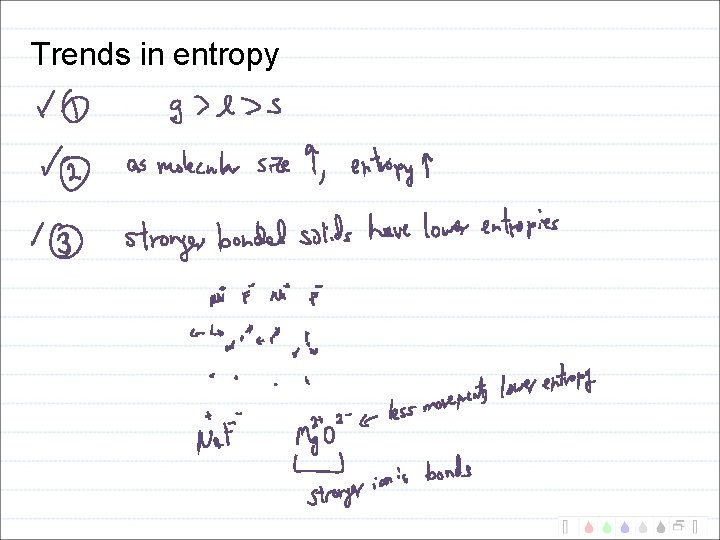 Trends in entropy
✓① g > l > s
✓② as molecular size ↑, entropy ↑
✓③ stronger bonded solids have lower entropies
Na⁺ F⁻ Na⁺ F⁻
Na⁺F⁻ Mg²⁺O²⁻ ← less movement, lower entropy
stronger ionic bonds